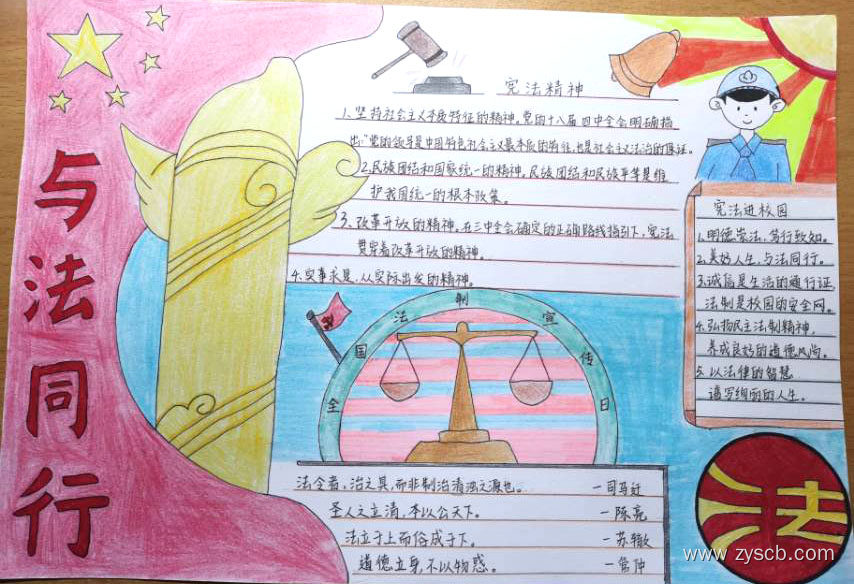 与法同行
宪法精神
1、坚持社会主义本质特征的精神，党的十八届四中全会明确指
出，“党的领导是中国特色社会主义最本质的特征，也是社会主义法治的保证。
2、民族团结和国家统一的精神，民族团结和民族平等是维
护我国统一的根本政策。
3、改革开放的精神。在三中全会确定的正确路线指引下，宪法
贯穿着改革开放的精神。
4、实事求是，从实际出发的精神。
宪法进校园
1、明德崇法，笃行致知。
2、美好人生，与法同行。
3、诚信是生活的通行证
法制是校园的安全网。
4、弘扬民主法制精神，
养成良好的道德风尚。
5、以法律的智慧
谱写绚丽的人生。
全国法制宣传日
法令者，治之具，而非制治清浊之源也。 —司马迁
圣人之立清，本以公天下。 —陈亮
法立于上而俗成于下。 —苏辙
道德立身，不以物惑。 —管仲
法
www.zyscb.com